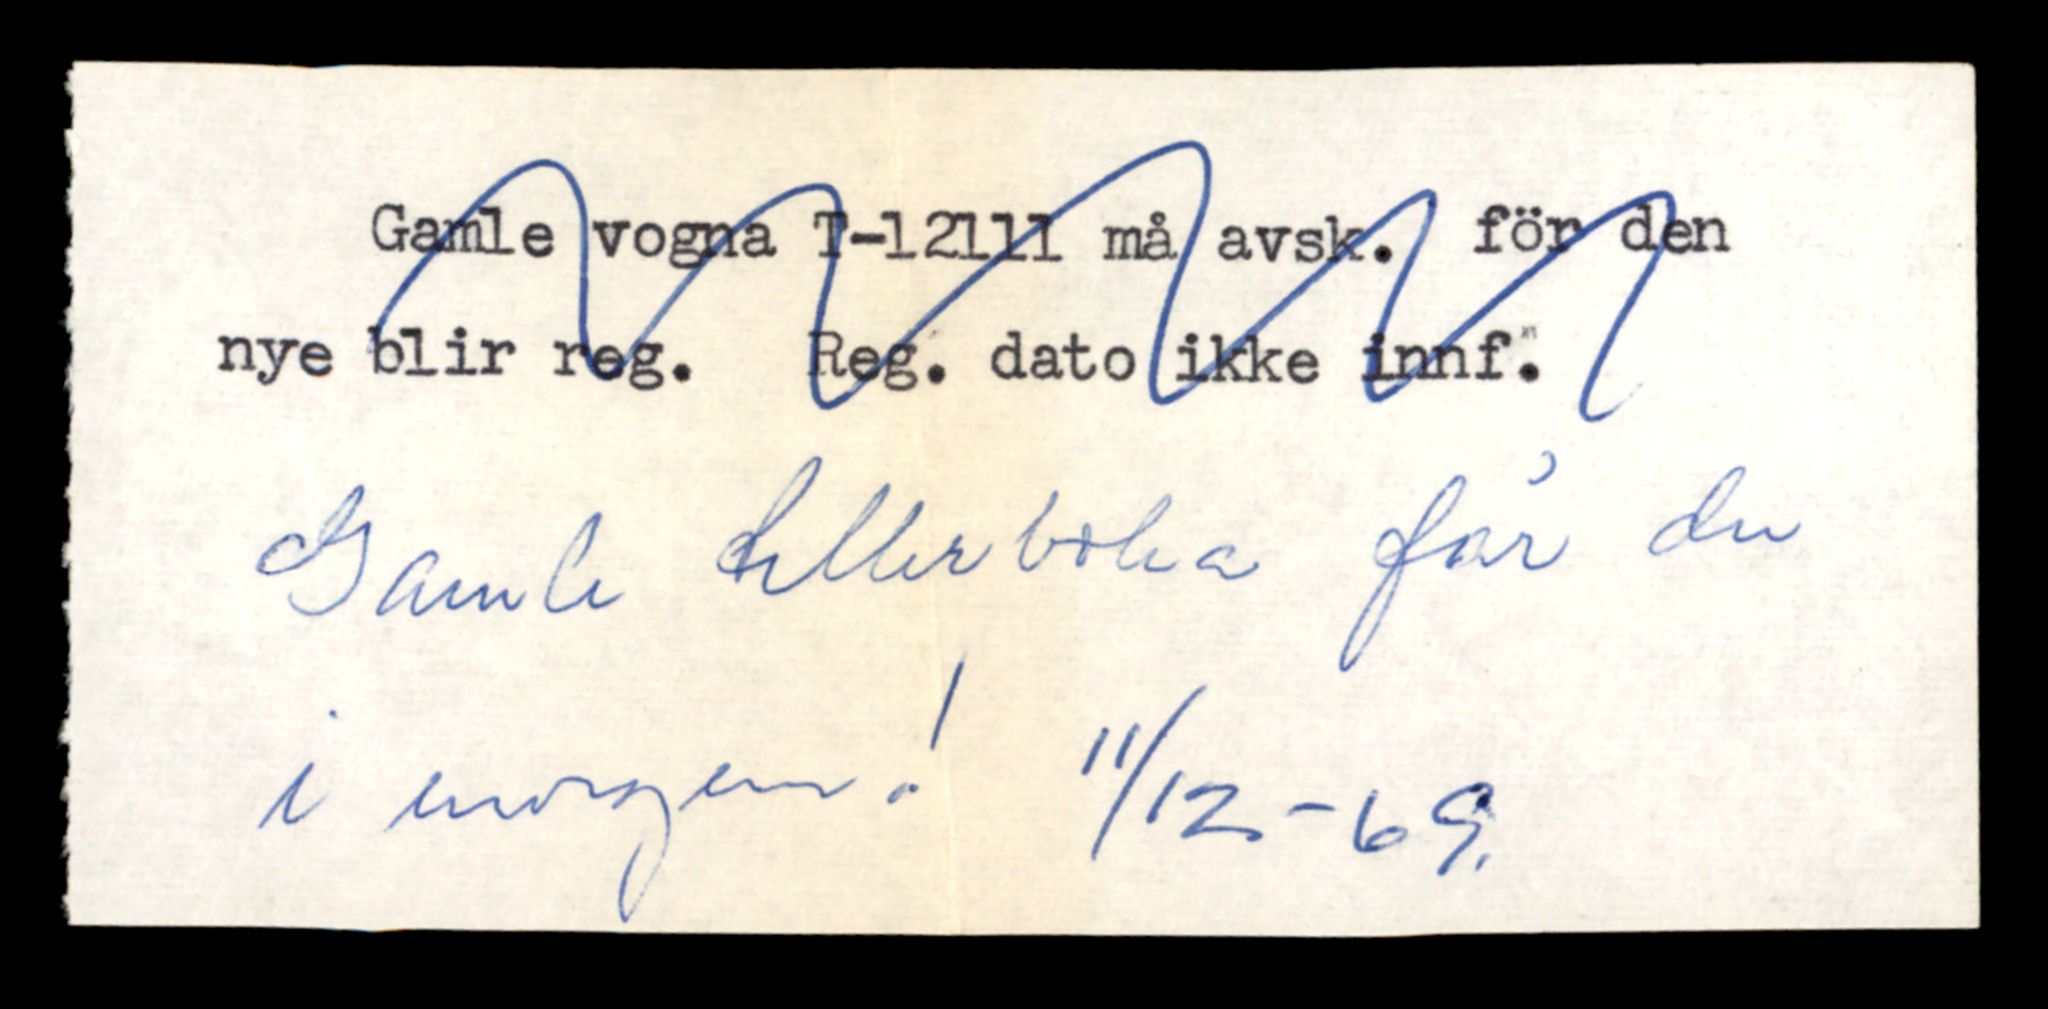 Gamle vogna T-12111 må avsk. för den
nye blir reg. Reg. dato ikke innf.
Gamle får du
i morgen! 11/12-69.